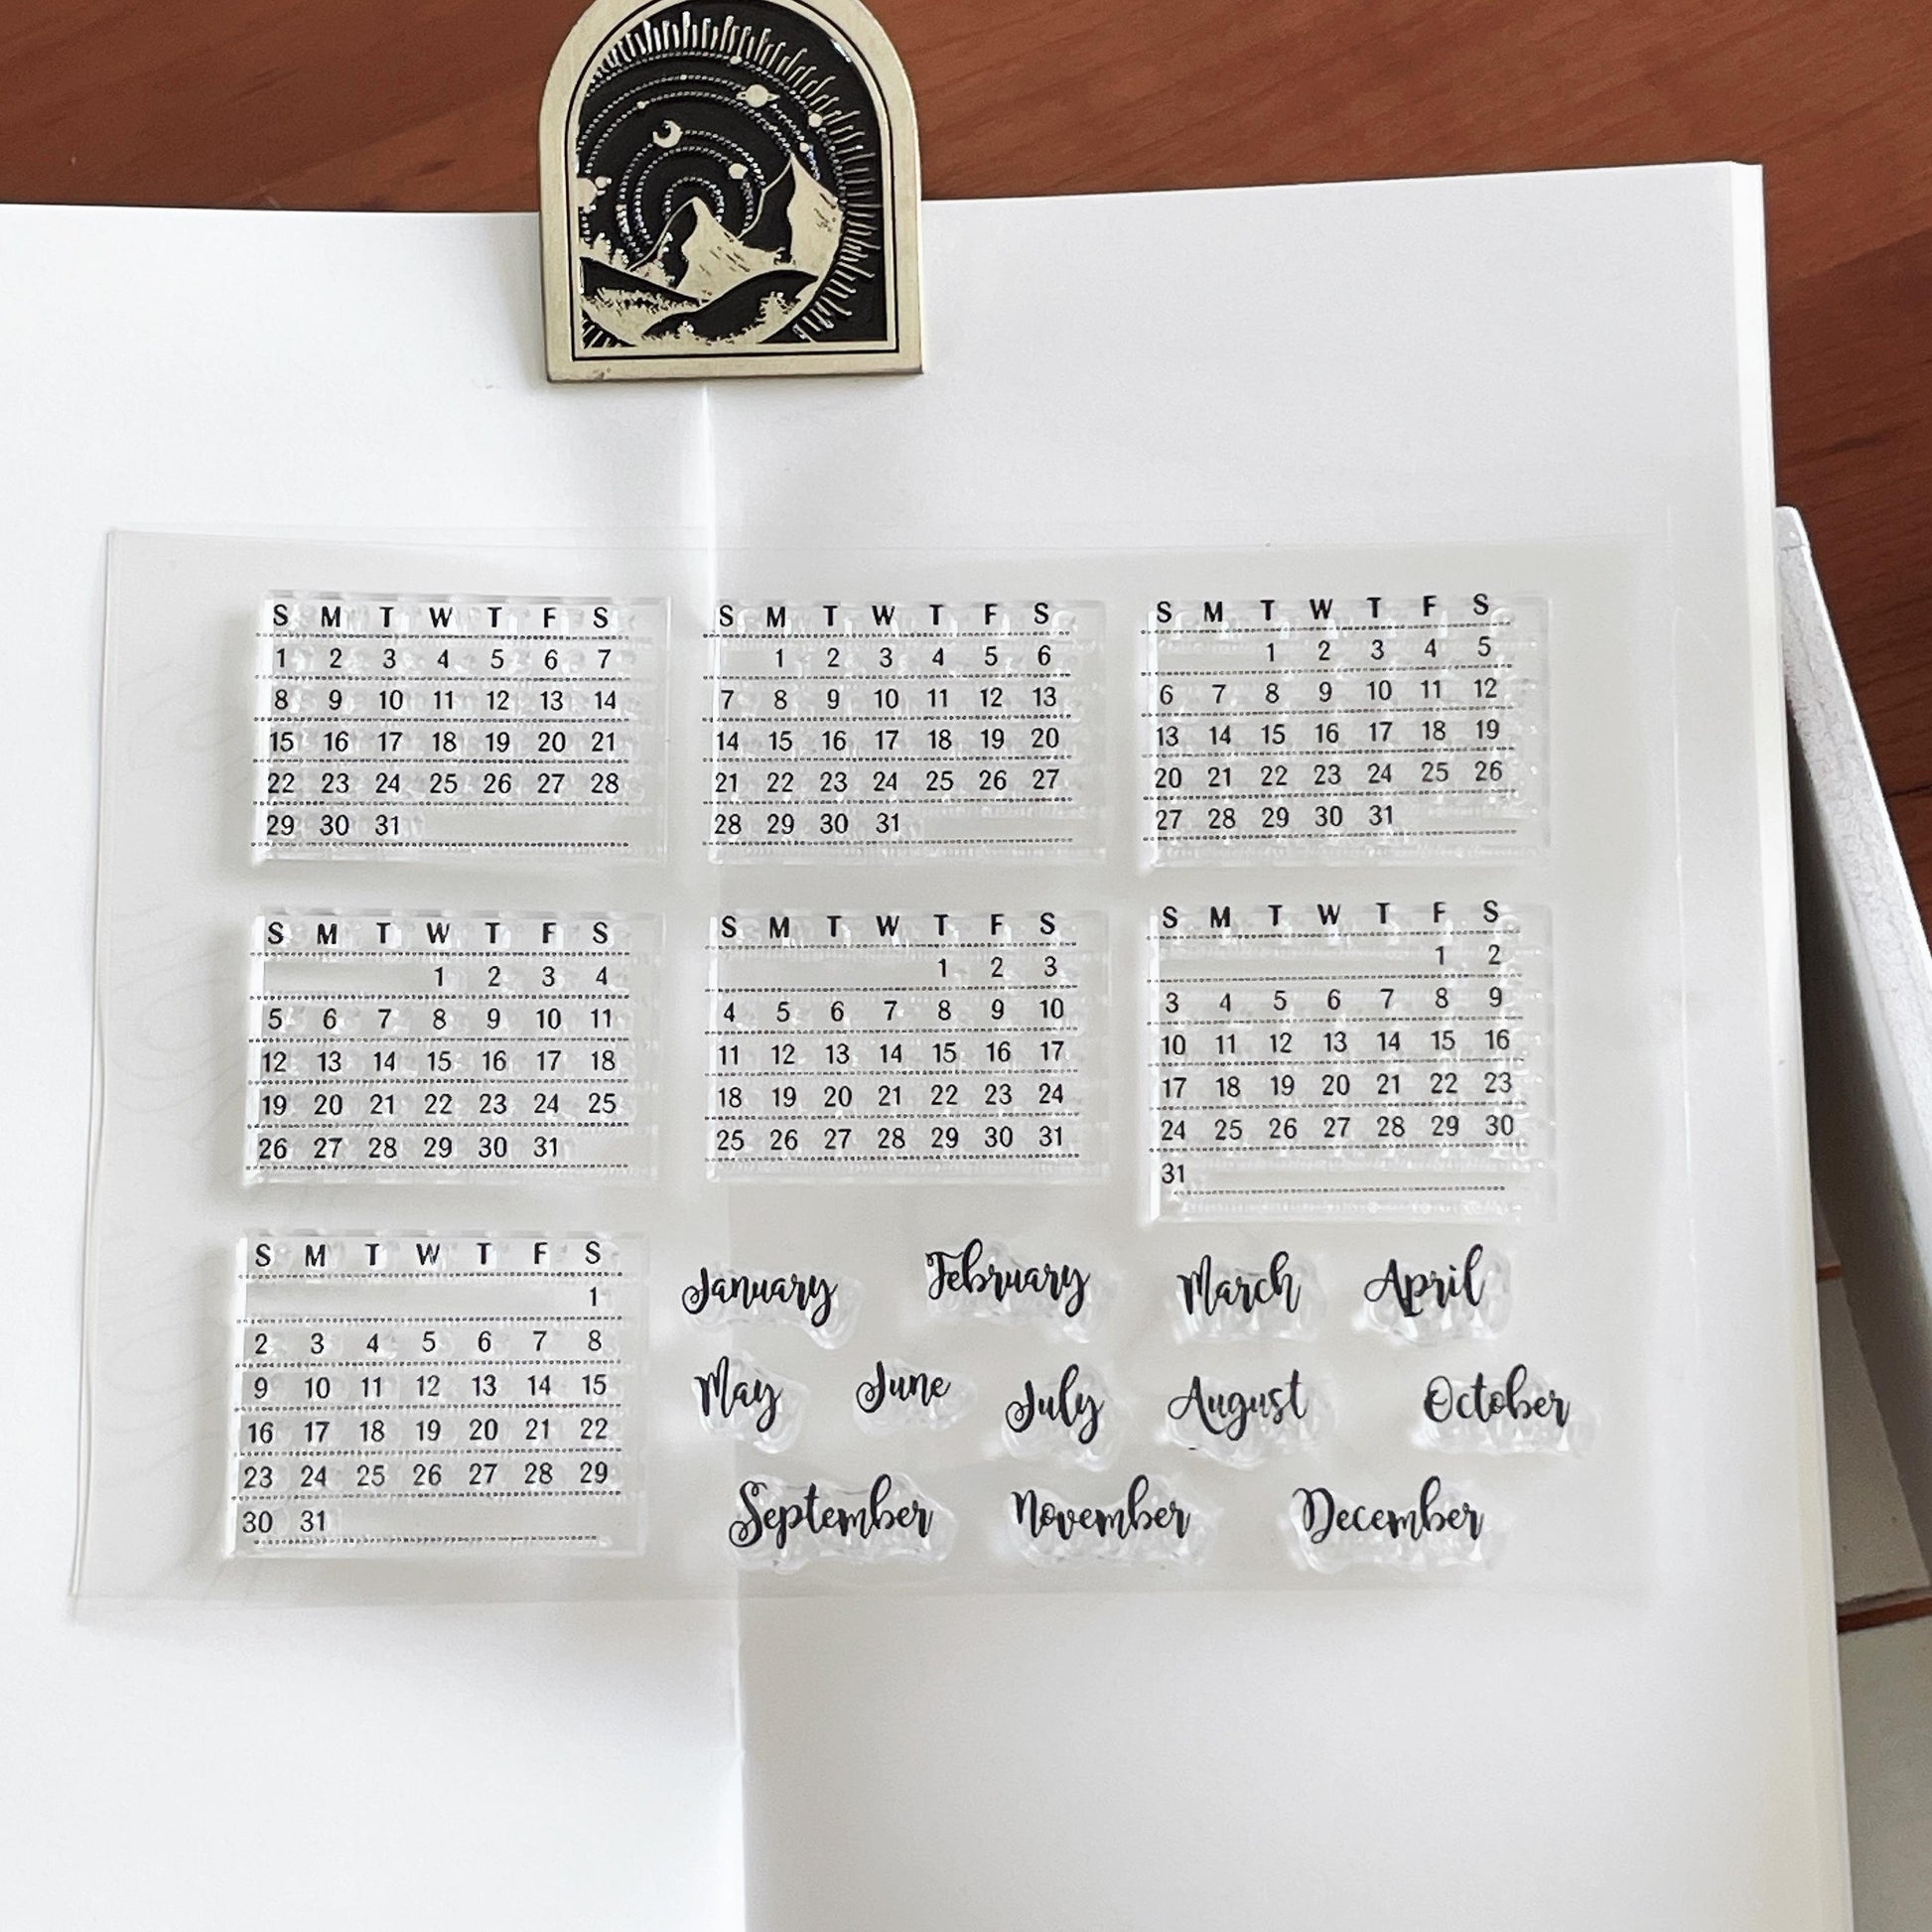 S M T W T F S
1 2 3 4 5 6 7
8 9 10 11 12 13 14
15 16 17 18 19 20 21
22 23 24 25 26 27 28
29 30 31
S M T W T F S
1 2 3 4 5 6
7 8 9 10 11 12 13
14 15 16 17 18 19 20
21 22 23 24 25 26 27
28 29 30 31
S M T W T F S
1 2 3 4 5
6 7 8 9 10 11 12
13 14 15 16 17 18 19
20 21 22 23 24 25 26
27 28 29 30 31
S M T W T F S
1 2 3 4
5 6 7 8 9 10 11
12 13 14 15 16 17 18
19 20 21 22 23 24 25
26 27 28 29 30 31
S M T W T F S
1 2 3
4 5 6 7 8 9 10
11 12 13 14 15 16 17
18 19 20 21 22 23 24
25 26 27 28 29 30 31
S M T W T F S
1 2
3 4 5 6 7 8 9
10 11 12 13 14 15 16
17 18 19 20 21 22 23
24 25 26 27 28 29 30
31
S M T W T F S
1
2 3 4 5 6 7 8
9 10 11 12 13 14 15
16 17 18 19 20 21 22
23 24 25 26 27 28 29
30 31
January February March April
May June July August October
September November December